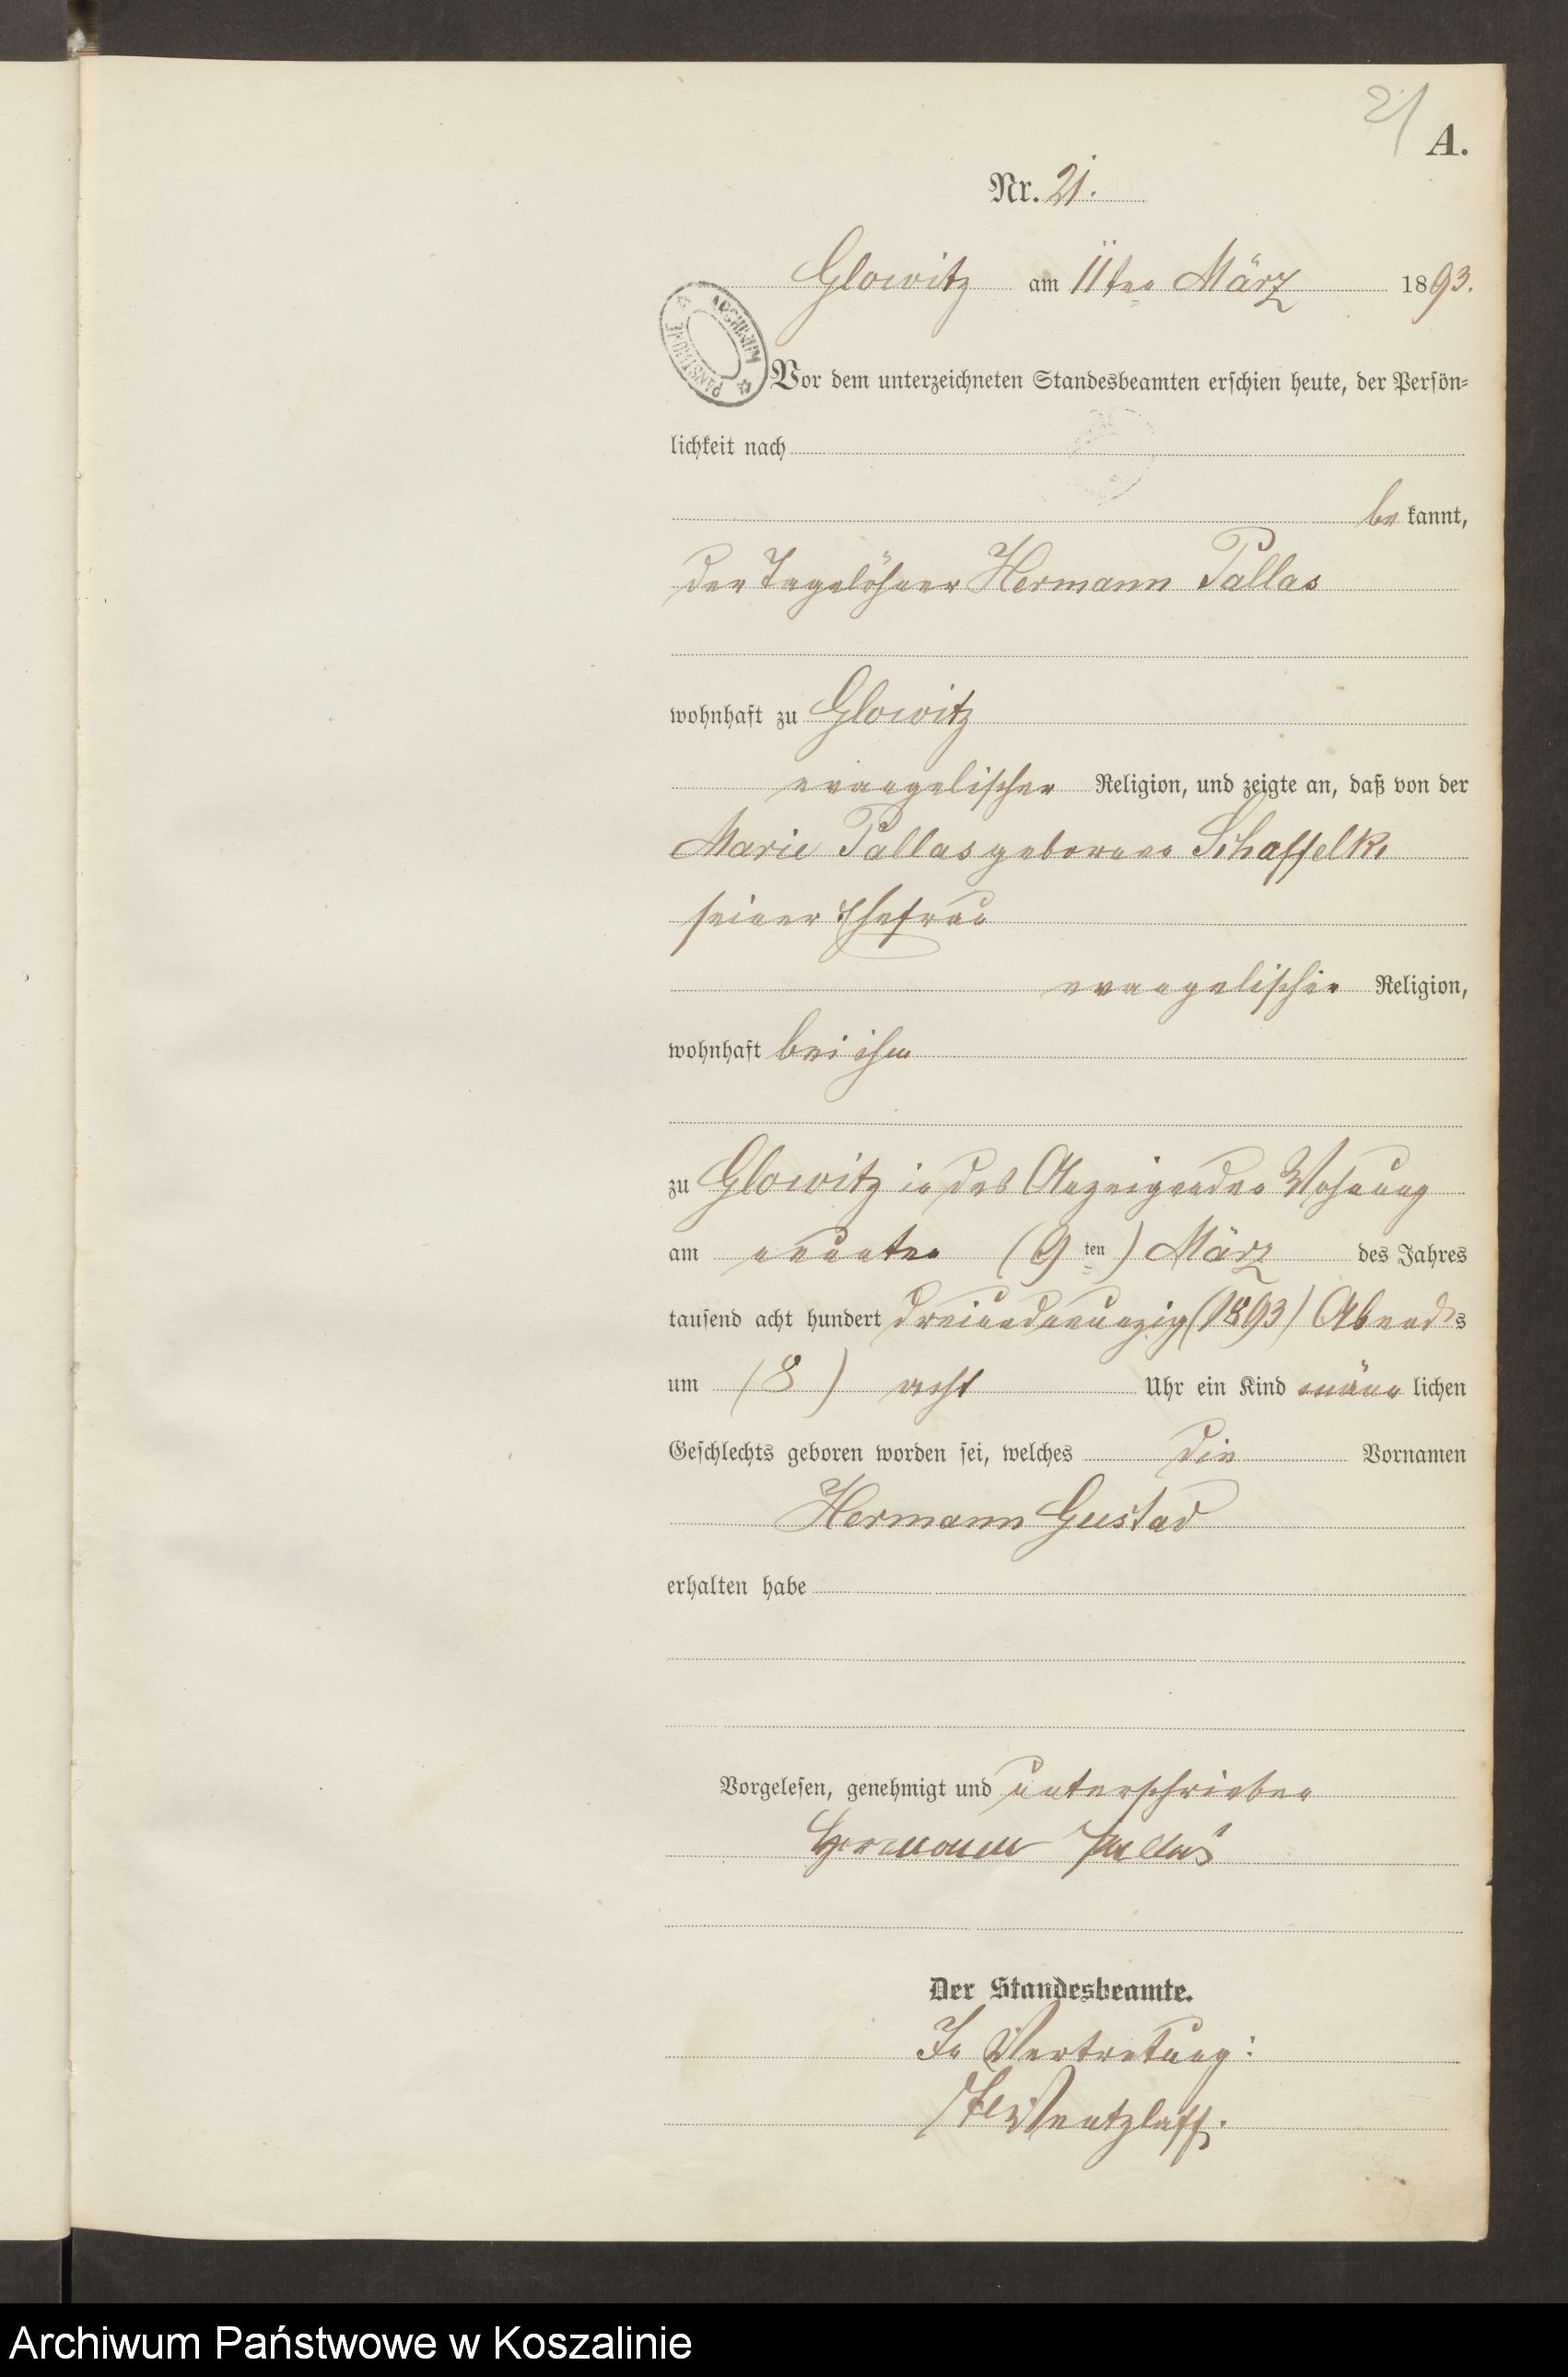 21
A.
Nr. 21.
Glowitz am 11ten März 1893.
ARCHIWUM PAŃSTWOWE
Vor dem unterzeichneten Standesbeamten erschien heute, der Persön-
lichkeit nach
be kannt,
der Tagelöhner Hermann Pallas
wohnhaft zu Glowitz
evangelischer Religion, und zeigte an, daß von der
Marie Pallas geborenen Schaffelk
seiner Ehefrau
evangelischer Religion,
wohnhaft bei ihm
zu Glowitz in des Anzeigenden Wohnung
am neunten (9 ten) März des Jahres
tausend acht hundert dreiundneunzig (1893) Abends
um (8) acht Uhr ein Kind männ lichen
Geschlechts geboren worden sei, welches die Vornamen
Hermann Gustav
erhalten habe
Vorgelesen, genehmigt und unterschrieben
Hermann Pallas
Der Standesbeamte.
In Vertretung:
Wentzlaff.
Archiwum Państwowe w Koszalinie